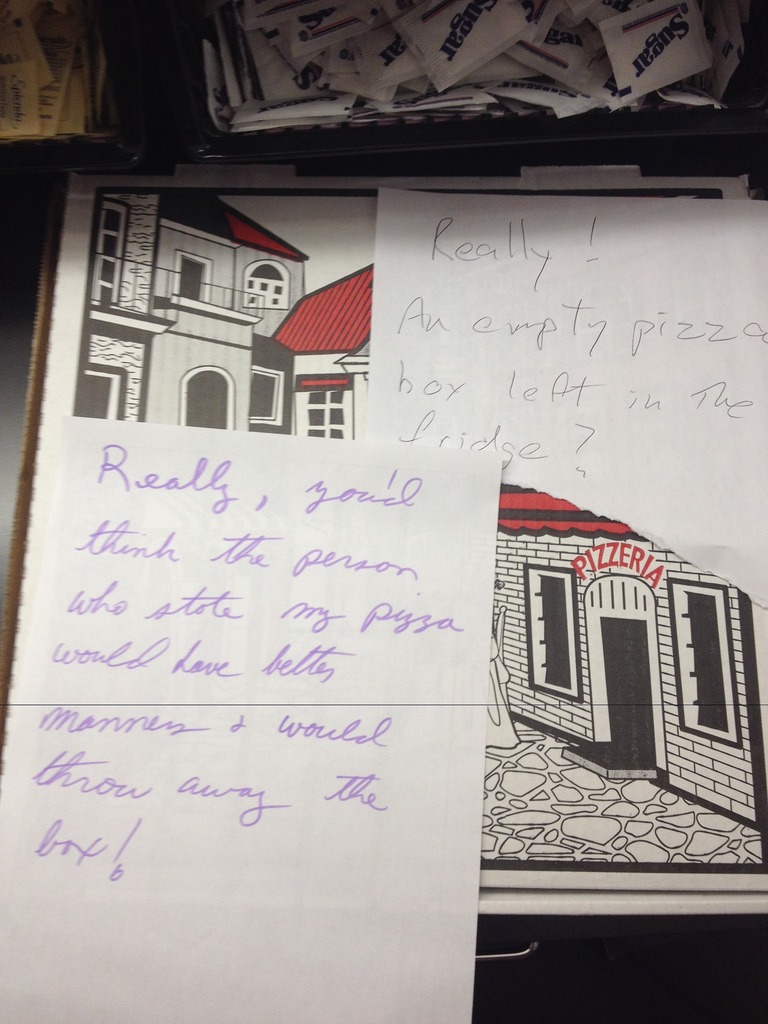 Sugar
Sugar
Sugar
Really!
An empty pizza
box left in the
fridge?
PIZZERIA
Really, you'd
think the person
who stole my pizza
would have better
manners & would
throw away the
box!